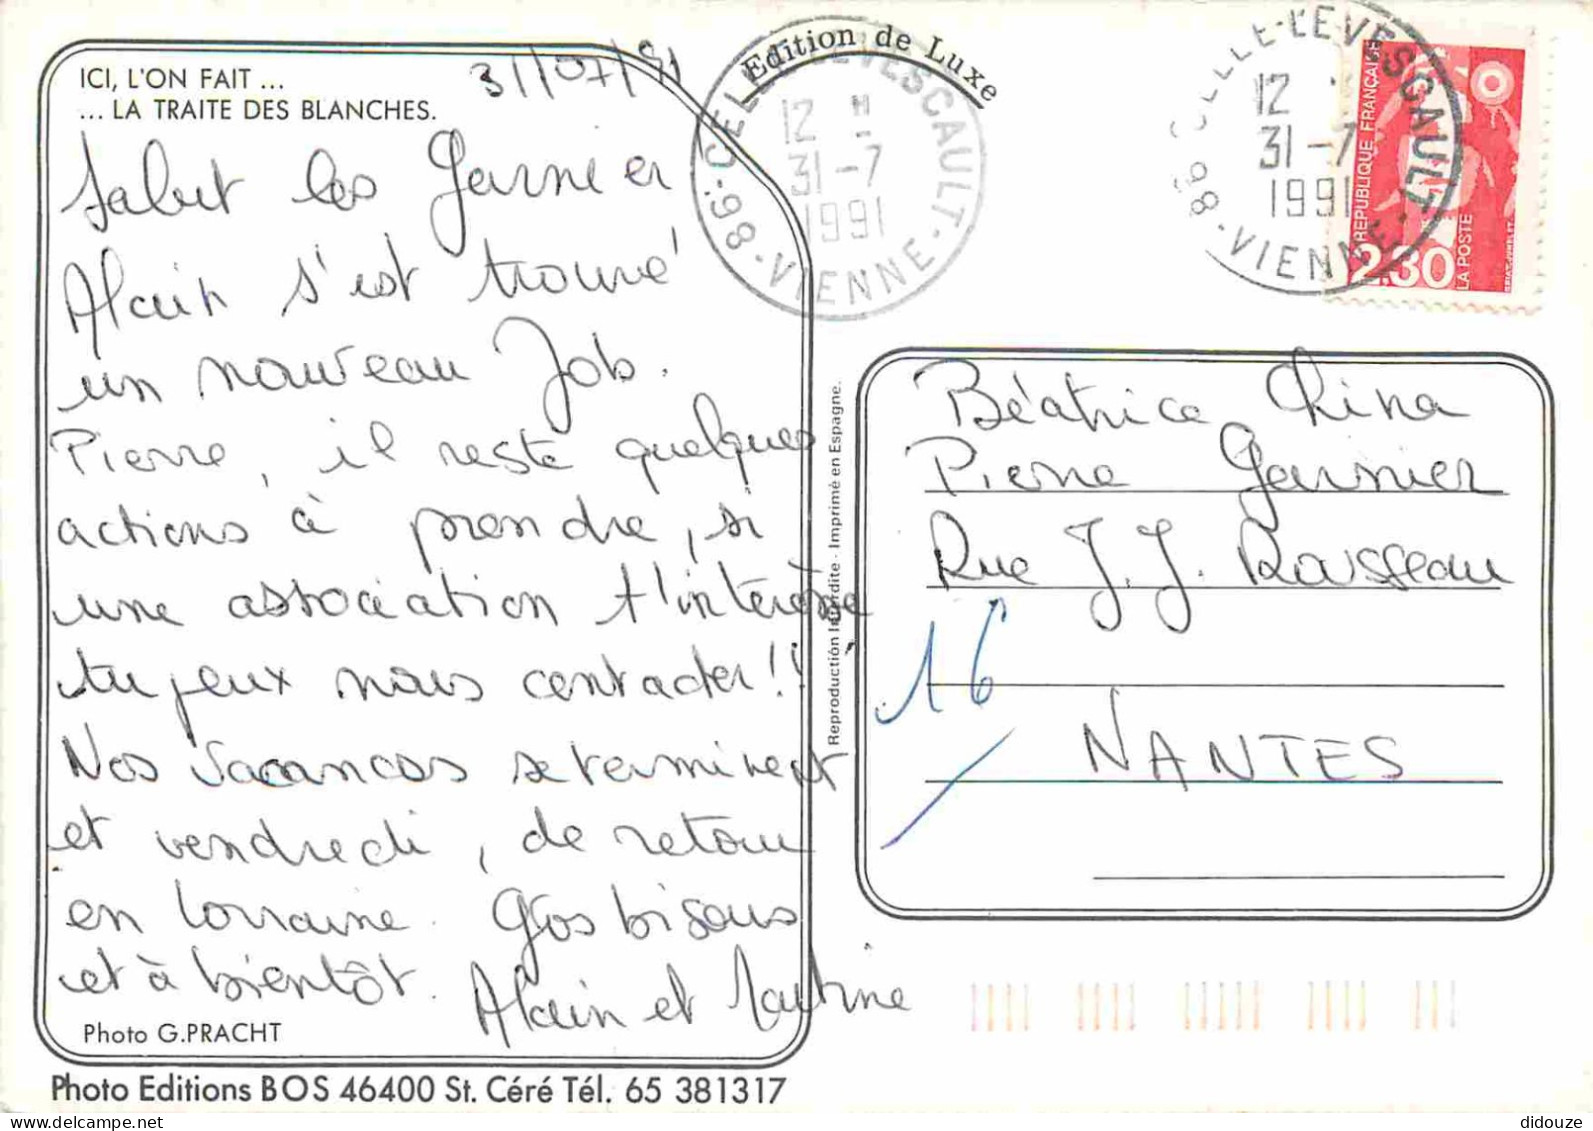 ICI, L'ON FAIT ...
... LA TRAITE DES BLANCHES.
31/07/91
Salut les Garnier
Alain s'est trouvé
un nouveau Job.
Pierre, il reste quelques
actions à prendre, si
une association t'intéresse
tu peux nous contacter!!
Nos vacances se terminent
et vendredi, de retour
en Lorraine. Gros bisous
et à bientôt.
Alain et Martine
Photo G.PRACHT
Photo Editions BOS 46400 St. Céré Tél. 65 381317
Edition de Luxe
CELLE-L'EVESCAULT
12 H
31-7
1991
86 - VIENNE
Reproduction Interdite - Imprimé en Espagne.
CELLE-L'EVESCAULT
12
31-7
1991
86 - VIENNE
REPUBLIQUE FRANÇAISE
2.30
LA POSTE
Béatrice China
Pierre Garnier
Rue J.J. Rousseau
16
NANTES
didouze